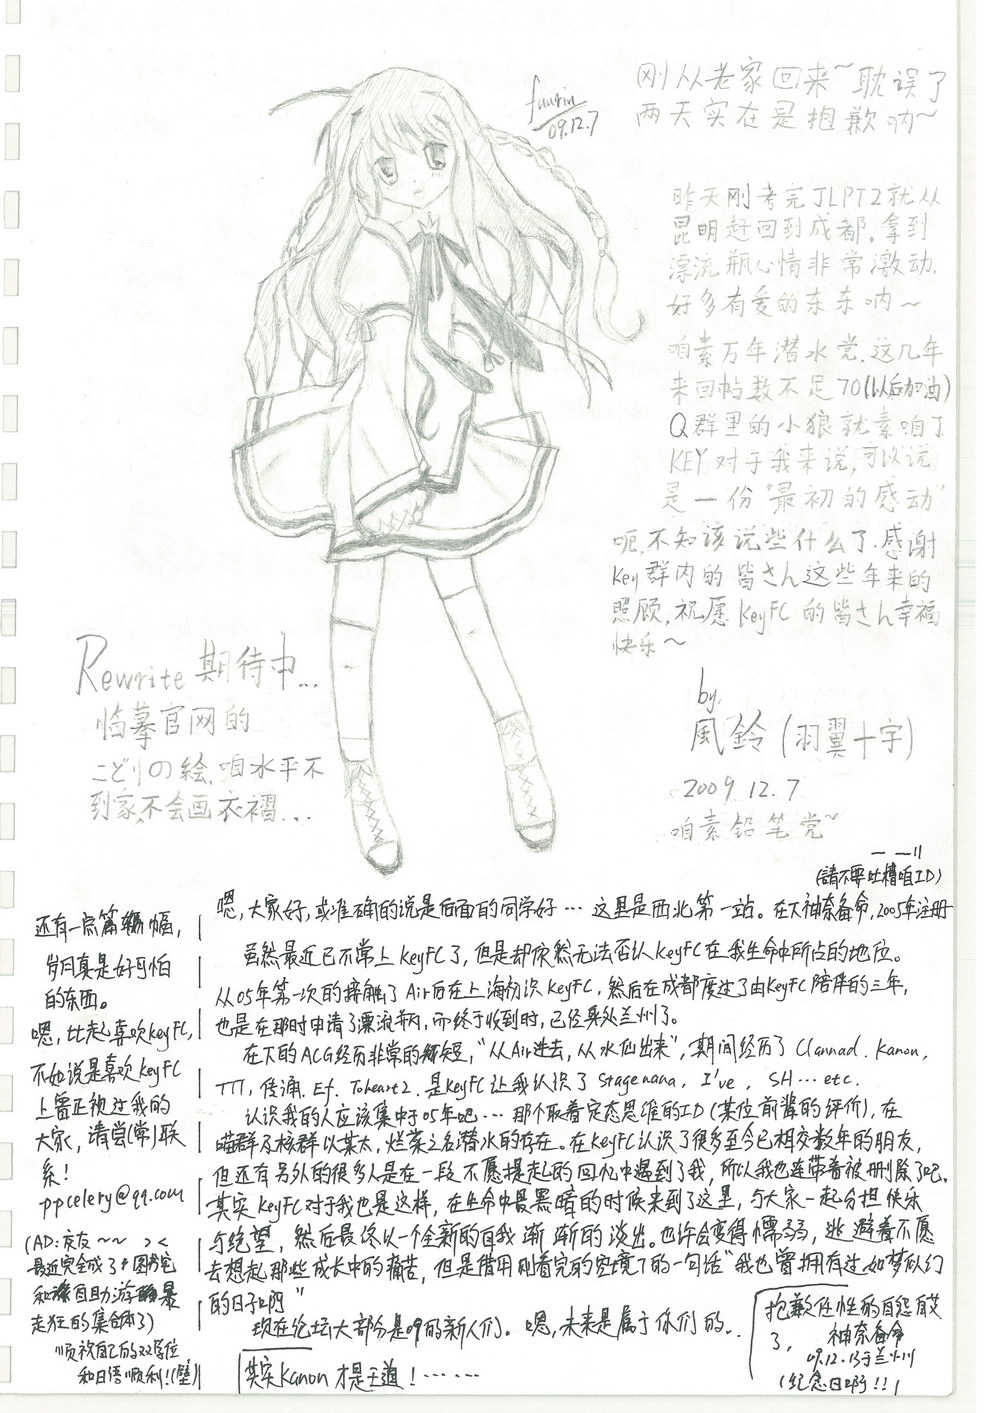 fuurin
09.12.7
刚从老家回来~耽误了
两天实在是抱歉呐~
昨天刚考完JLPT2就从
昆明赶回到成都,拿到
漂流瓶心情非常激动.
好多有爱的东东呐~
咱素万年潜水党.这几年
来回帖数不足70(以后加油)
Q群里的小狼就素咱了
KEY对于我来说,可以说
是一份“最初的感动”
呃,不知该说些什么了.感谢
Key群内的皆さん这些年来的
照顾,祝愿KeyFC的皆さん幸福
快乐~
by.
風鈴(羽翼十字)
2009.12.7
咱素铅笔党~
(請不要吐槽咱ID)
Rewrite期待中...
临摹官网的
こどりの绘,咱水平不
到家,不会画衣褶...
嗯,大家好,或准确的说是后面的同学好…这里是西北第一站。在下神奈备命,2005年注册
虽然最近已不常上KeyFC了,但是却依然无法否认KeyFC在我生命中所占的地位。
从05年第一次的接触了Air后在上海初识KeyFC,然后在成都度过了由KeyFC陪伴的三年,
也是在那时申请了漂流瓶,而终于收到时,已经身处兰州了。
在下的ACG经历非常的短,“从Air进去,从水仙出来”,期间经历了Clannad.Kanon,
TTT,传诵.Ef.Toheart2.是KeyFC让我认识了Stage nana,I've,SH…etc.
认识我的人应该集中于05年吧…那个取着定态思维的ID(某位前辈的评价),在
喵群及核群以某太,烂菜之名潜水的存在。在KeyFC认识了很多至今已相交数年的朋友,
但还有另外的很多人是在一段不愿提起的回忆中遇到了我,所以我也连带着被删除了吧.
其实KeyFC对于我也是这样,在生命中最黑暗的时候来到了这里,与大家一起分担快乐
与绝望,然后最终以一个全新的自我渐渐的淡出。也许会变得懦弱,逃避着不愿
去想起那些成长中的痛苦,但是借用刚看完的空境7的一句话“我也曾拥有过如梦似幻
的日子啊”
现在论坛大部分是09的新人们。嗯,未来是属于你们的..
其实Kanon才是王道!……
抱歉任性的自怨自艾
了,神奈备命
09.12.13于兰州
(纪念日啊!!)
还有一点篇幅,
岁月真是好可怕
的东西。
嗯,比起喜欢KeyFC,
不如说是喜欢KeyFC
上曾正视过我的
大家,请尝(常)联
系!
ppcelery@qq.com
(AD:京友~~ ><
最近完成了#图書館
和自助游最
走狂的集合体了)
顺祝自己的双学位
和日语顺利!(壁)